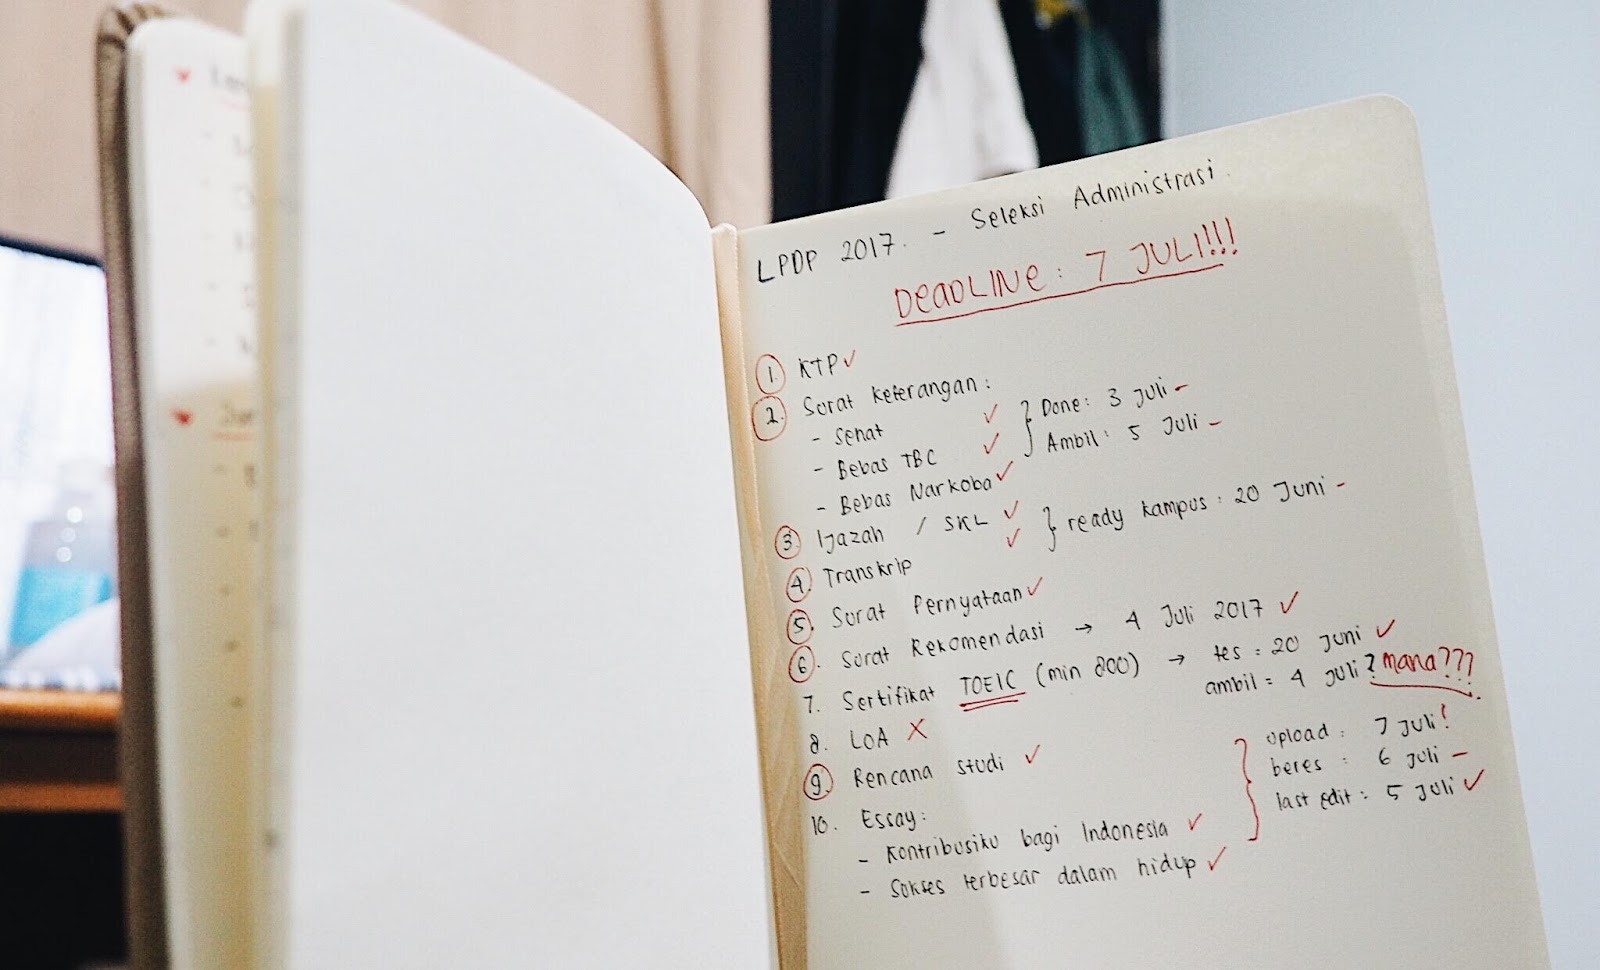 LPDP 2017. - Seleksi Administrasi.
DEADLINE: 7 JULI!!!
1. KTP ✓
2. Surat keterangan:
- Sehat ✓ } Done: 3 Juli -
- Bebas TBC ✓ Ambil: 5 Juli -
- Bebas Narkoba ✓
3. Ijazah / SKL ✓ } ready kampus: 20 Juni -
4. Transkrip ✓
5. Surat Pernyataan ✓
6. Surat Rekomendasi → 4 Juli 2017 ✓
7. Sertifikat TOEIC (min 800) → tes = 20 Juni ✓
ambil = 4 Juli? Mana???
8. LOA X
9. Rencana studi ✓
10. Essay:
- Kontribusiku bagi Indonesia ✓
- Sukses terbesar dalam hidup ✓
} upload: 7 Juli!
beres: 6 Juli -
last edit: 5 Juli ✓